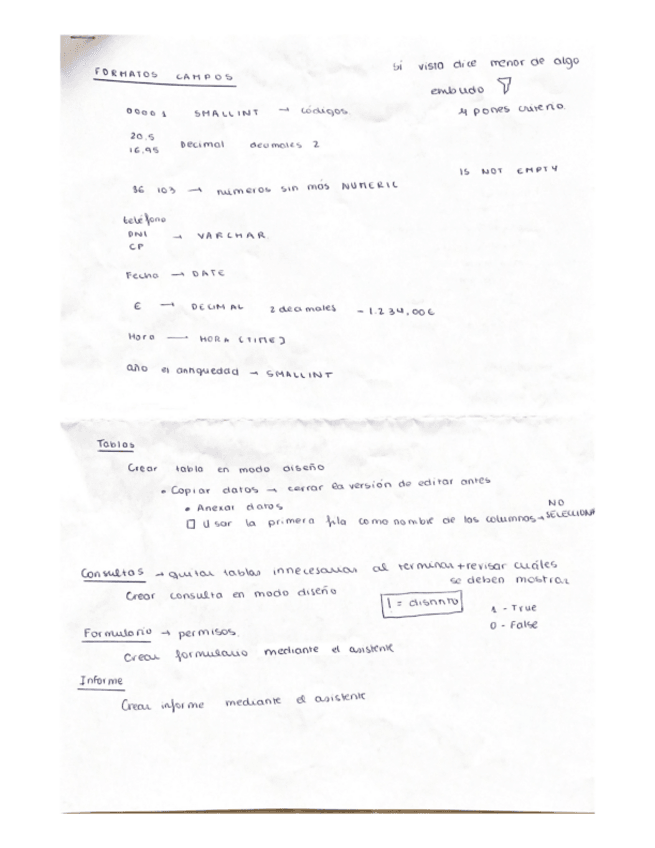 FORMATOS CAMPOS
Si vista dice menor de algo
embudo
y pones criterio.
00001 SMALLINT → códigos.
20,5
16,95 Decimal decimales 2
IS NOT EMPTY
36 103 → numeros sin más NUMERIC
teléfono
DNI → VARCHAR
CP
Fecha → DATE
€ → DECIMAL 2 decimales - 1.234,00€
Hora — HORA [TIME]
año antiguedad → SMALLINT
Tablas
Crear tabla en modo diseño
• Copiar datos → cerrar la versión de editar antes
• Anexar datos
□ Usar la primera fila como nombre de las columnas → NO SELECCIONA
Consultas → quitar tablas innecesarias al terminar + revisar cuáles
se deben mostrar
Crear consulta en modo diseño
! = distinto
1 - True
0 - False
Formulario → permisos.
Crear formulario mediante el asistente
Informe
Crear informe mediante el asistente